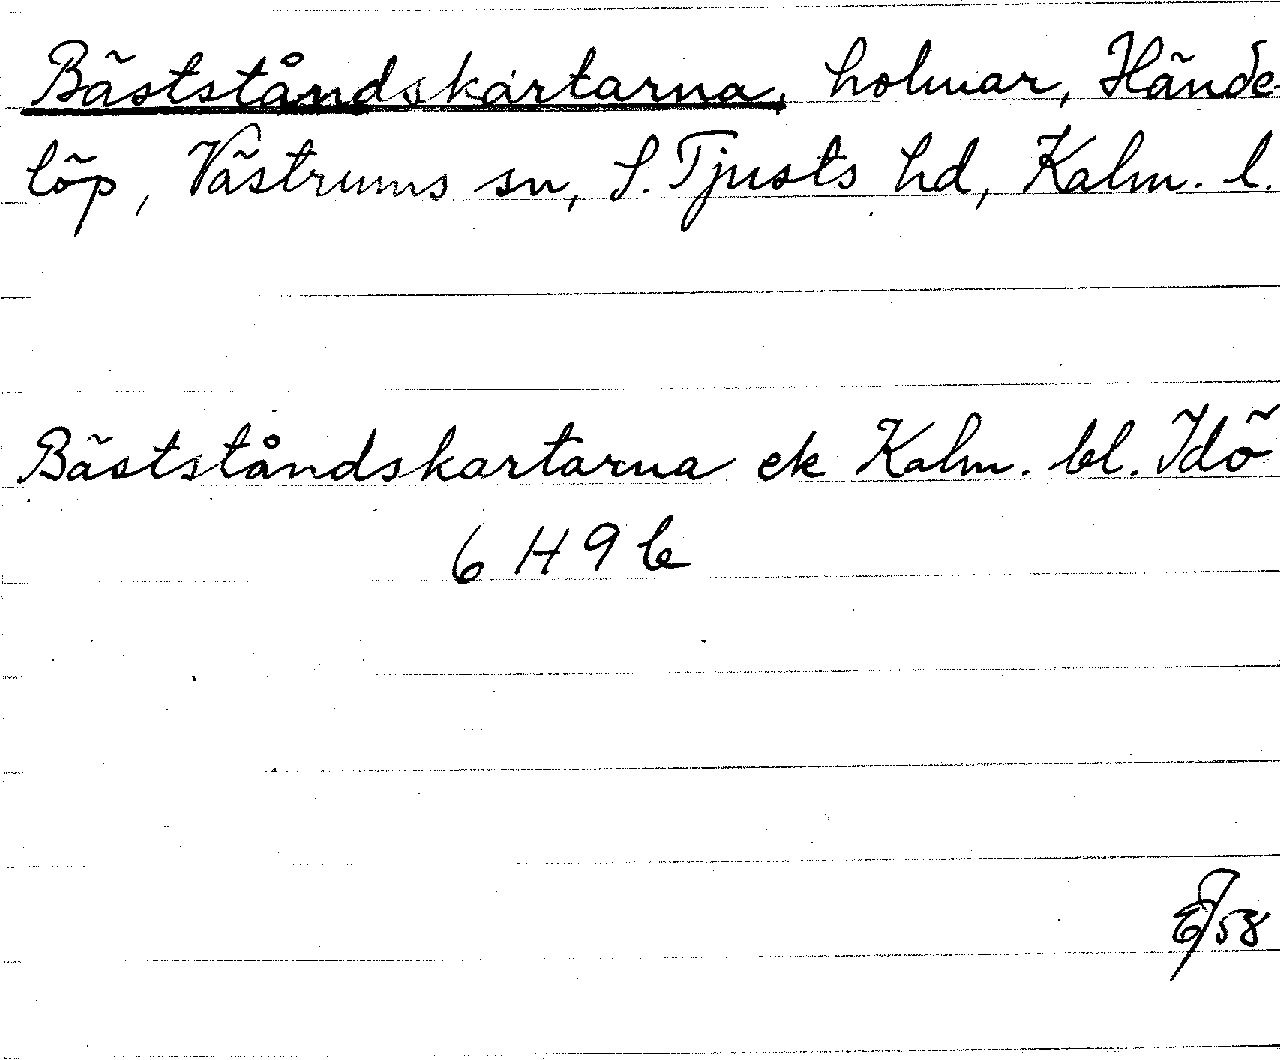 Bästståndskartarna, holmar, Hände-
löp, Västrums sn, S. Tjusts hd, Kalm. l.
Bästståndskartarna ek Kalm. bl. Idö
6 H 9 b
58